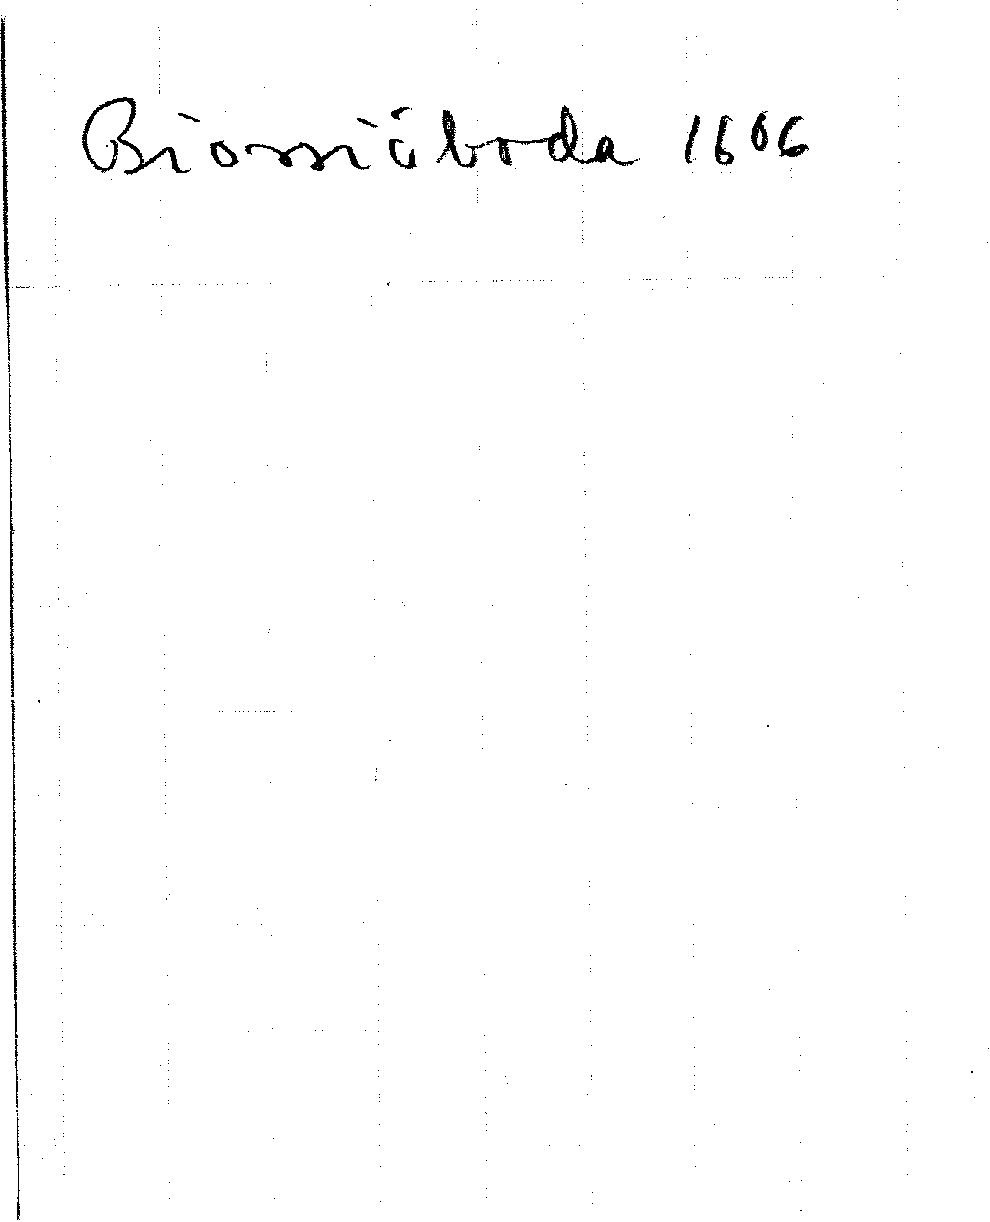 Biorniåboda 1606